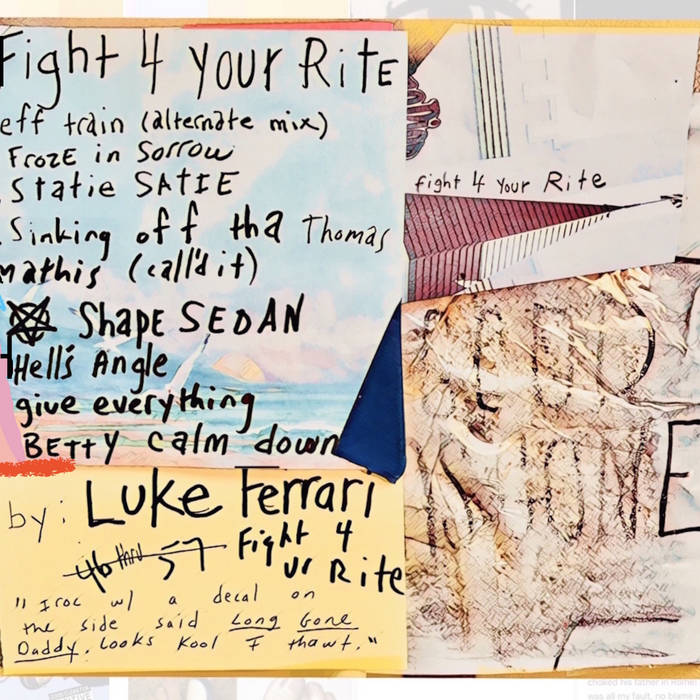 Fight 4 your RitE
eff train (alternate mix)
FrozE in Sorrow
. Statie SATIE
. Sinking off tha Thomas
mathis (call'd it)
ShapE SEDAN
Hell's Angle
give everything
BETTY calm down
by: LUKE Ferrari
46 thru 57 Fight 4
ur Rite
"Iroc w/ a decal on
the side said Long Gone
Daddy. Looks Kool I thawt."
fight 4 your Rite
E